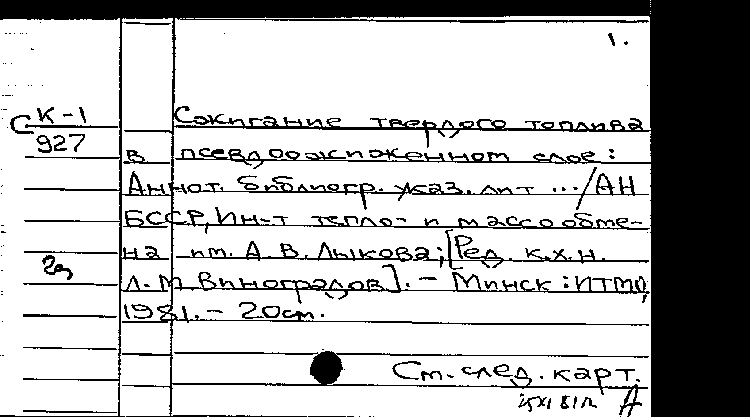 1.
С К-1
927
Сжигание твердого топлива
в псевдоожиженном слое:
Аннот. библиогр. указ. лит .../АН
БССР, Ин-т тепло- и массообме-
на им. А. В. Лыкова; [Ред. к.х.н.
Л. М. Виноградов]. - Минск: ИТМО,
1981. - 20см.
См. след. карт.
А